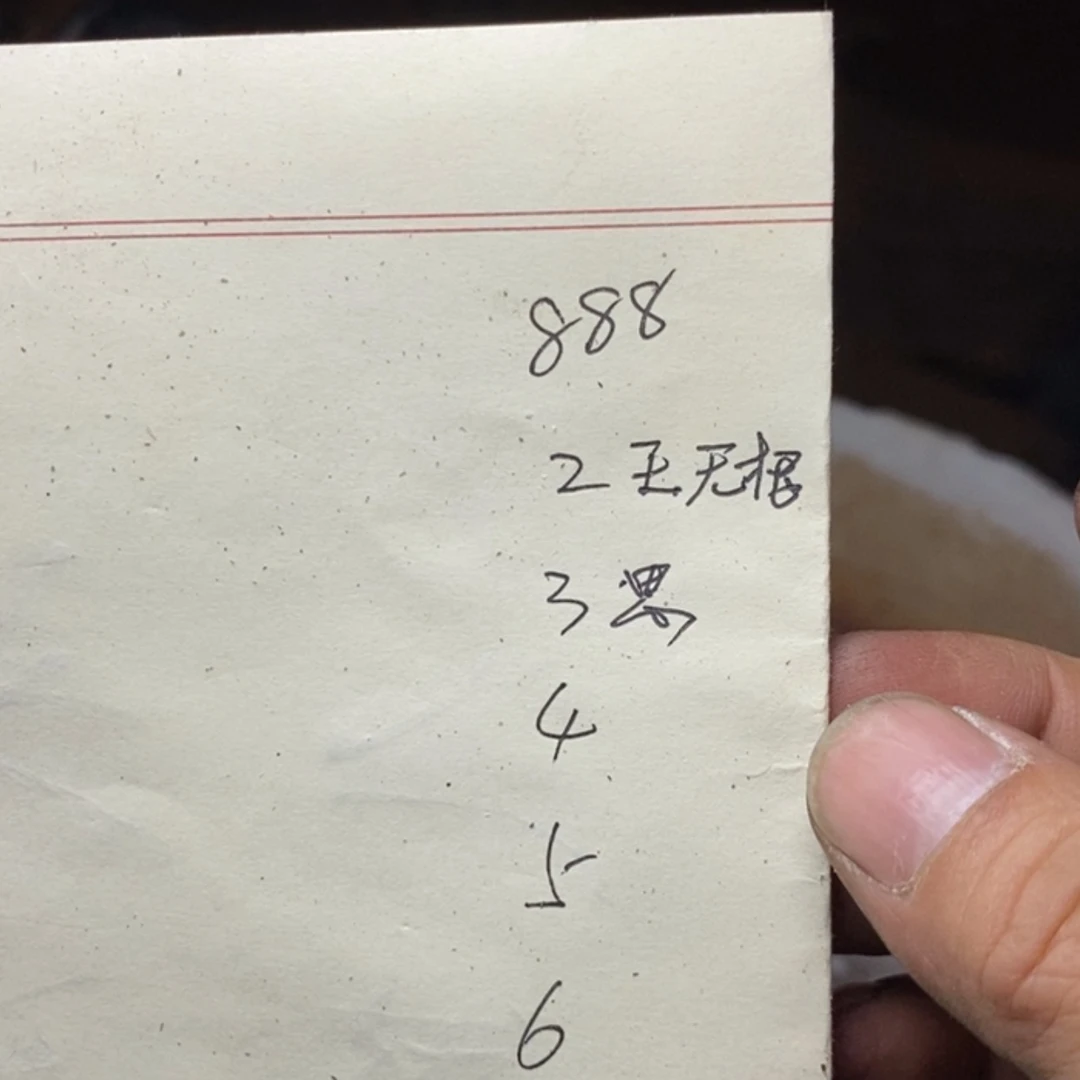 888
2 王无根
3
4
5
6